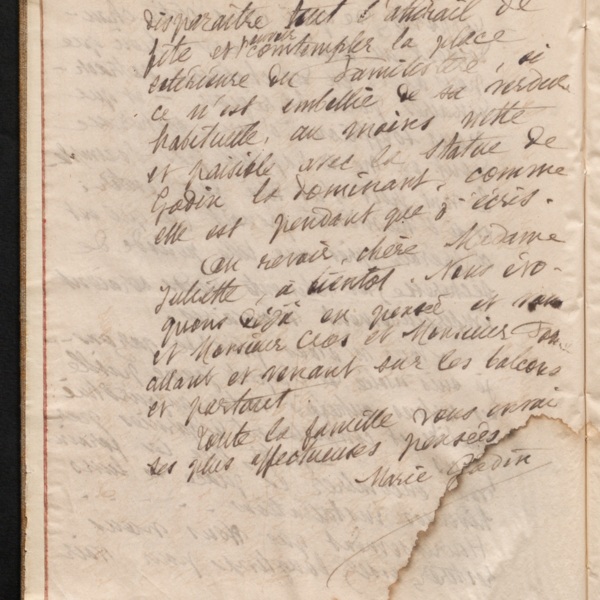 disparaître tout l'attirail de
fête et pouvoir contempler la place
extérieure du familistère, si
ce n'est embellie de sa verdure
habituelle, au moins nette
et paisible avec la statue de
Godin la dominant, comme
elle est pendant que j'écris.
Au revoir, chère Madame
Juliette, à bientôt. Nous évo-
quons déjà en pensée et vous
et Monsieur Cros et Monsieur
allant et venant sur les balcons
et partout.
Toute la famille vous envoie
ses plus affectueuses pensées
Marie Godin